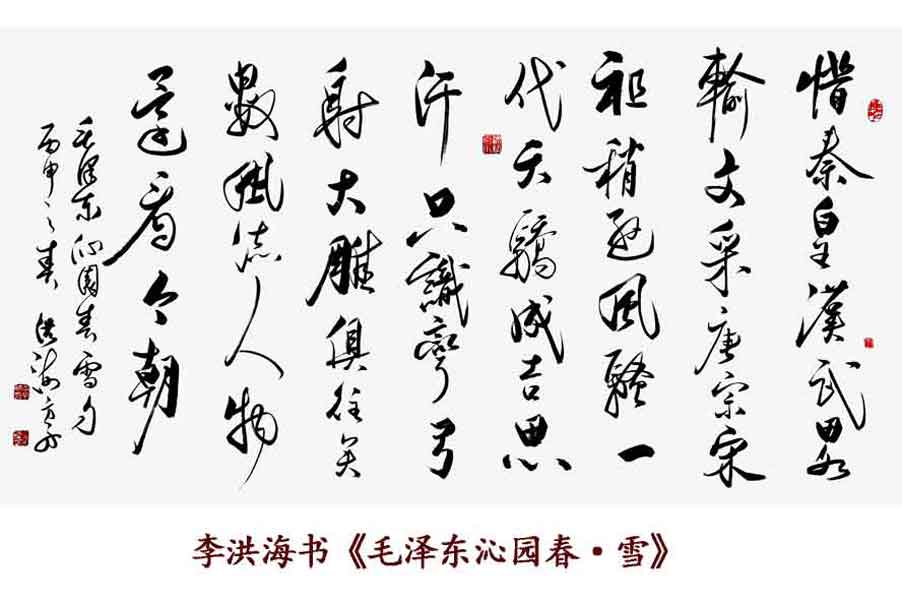 惜秦皇漢武畧
輸文采唐宗宋
祖稍遜風騷一
代天驕成吉思
汗只識彎弓
射大雕俱往矣
數風流人物
還看今朝
毛澤東沁園春雪句
丙申之春洪海
李洪海书《毛泽东沁园春·雪》